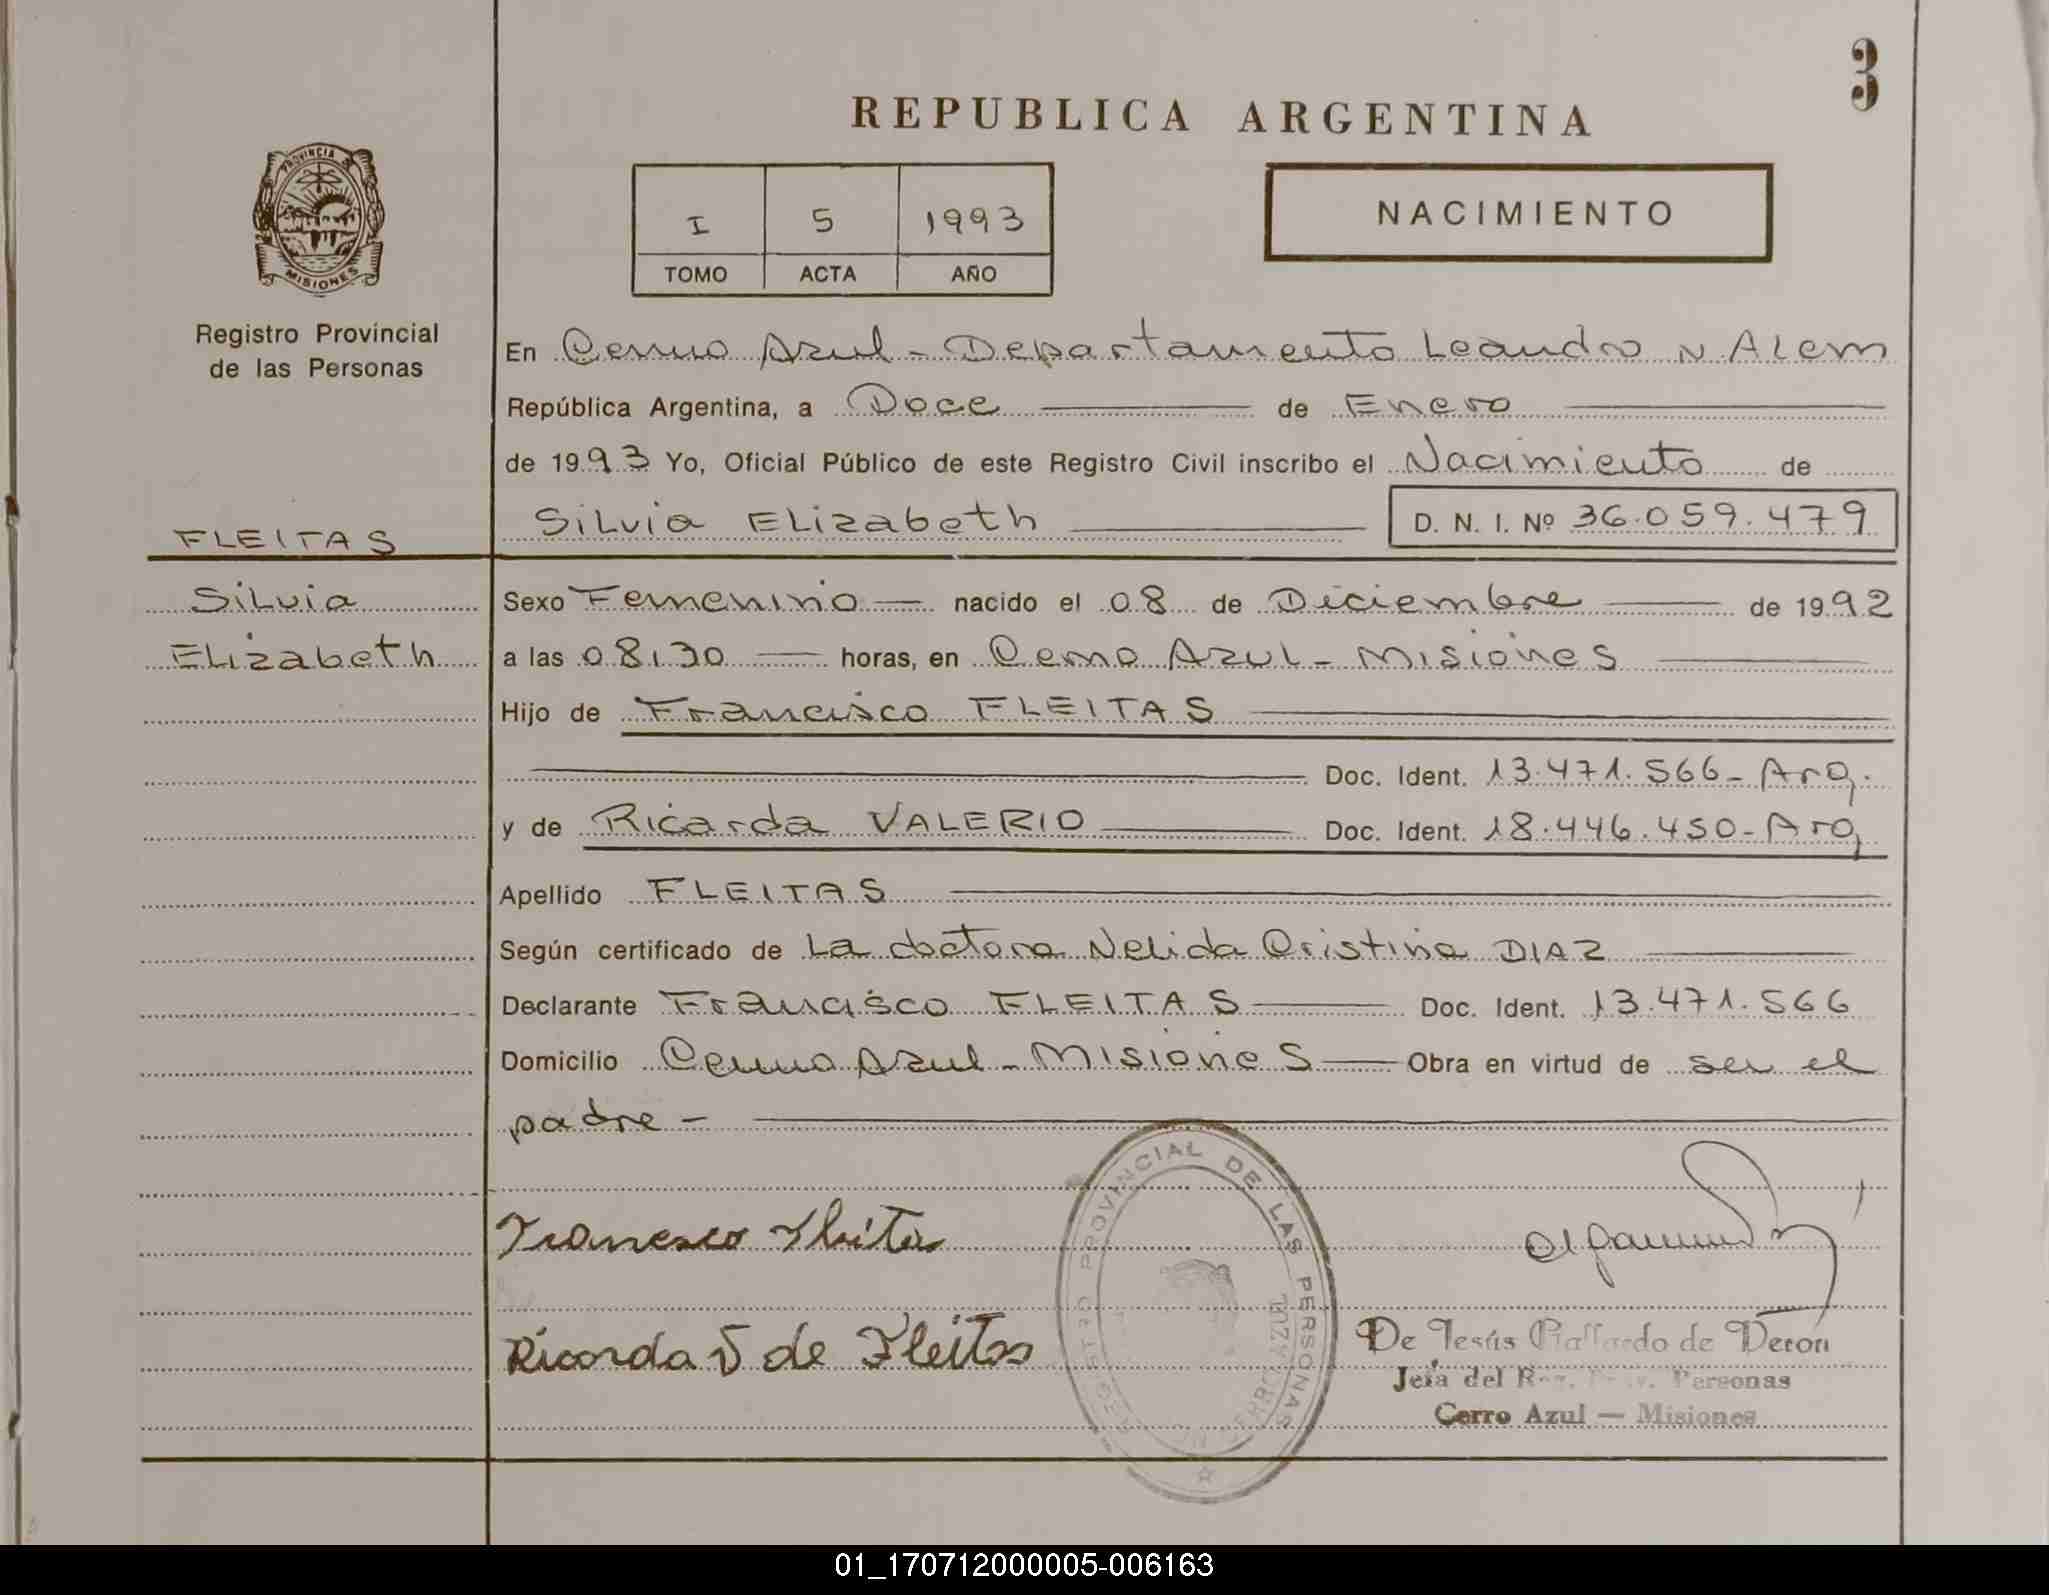 3
REPUBLICA ARGENTINA
PROVINCIA DE
MISIONES
Registro Provincial
de las Personas
I 5 1993
TOMO ACTA AÑO
NACIMIENTO
En Cerro Azul - Departamento Leandro N Alem
República Argentina, a Doce de Enero
de 1993 Yo, Oficial Público de este Registro Civil inscribo el Nacimiento de
Silvia Elizabeth D. N. I. Nº 36.059.479
FLEITAS
Silvia
Elizabeth
Sexo Femenino nacido el 08 de Diciembre de 1992
a las 08,30 horas, en Cerro Azul - Misiones
Hijo de Francisco FLEITAS
Doc. Ident. 13.471.566 - Arg.
y de Ricarda VALERIO Doc. Ident. 18.446.450 - Arg
Apellido FLEITAS
Según certificado de La doctora Nelida Cristina DIAZ
Declarante Francisco FLEITAS Doc. Ident. 13.471.566
Domicilio Cerro Azul - Misiones Obra en virtud de ser el
padre -
Ricarda V de Fleitas
REGISTRO PROVINCIAL DE LAS PERSONAS
CERRO AZUL
De Jesús Gallardo de Veron
Jefa del Reg. Prov. Personas
Cerro Azul — Misiones
01_170712000005-006163